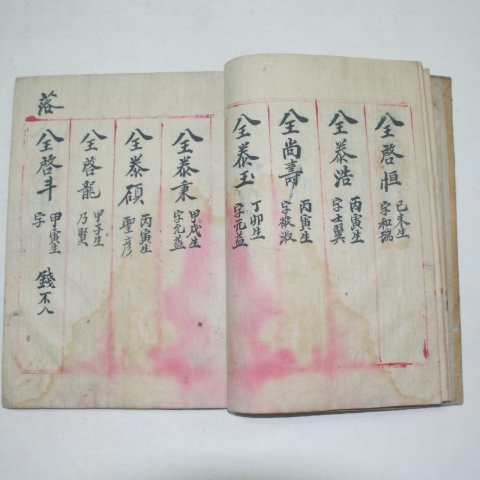 全啓恒
己未生
字和瑞
全泰浩
丙寅生
字士翼
全尚壽
丙寅生
字敬淑
全泰玉
丁卯生
字元益
全泰秉
甲戌生
字元益
全泰碩
丙寅生
聖彦
全啓龍
甲子生
乃賢
落
全啓斗
甲寅生
字
錢不入